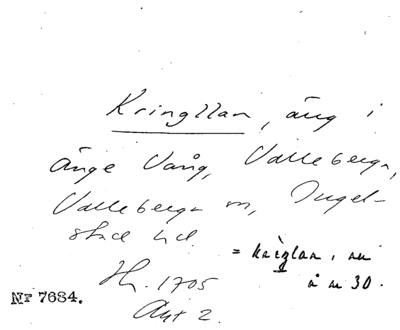 Kringllan, äng i
änge Vång, Valleberga,
Valleberga sn, Ingel-
stad hd
= kriglan, nu
å n 30.
Hh. 1705
Akt 2.
Nr 7684.